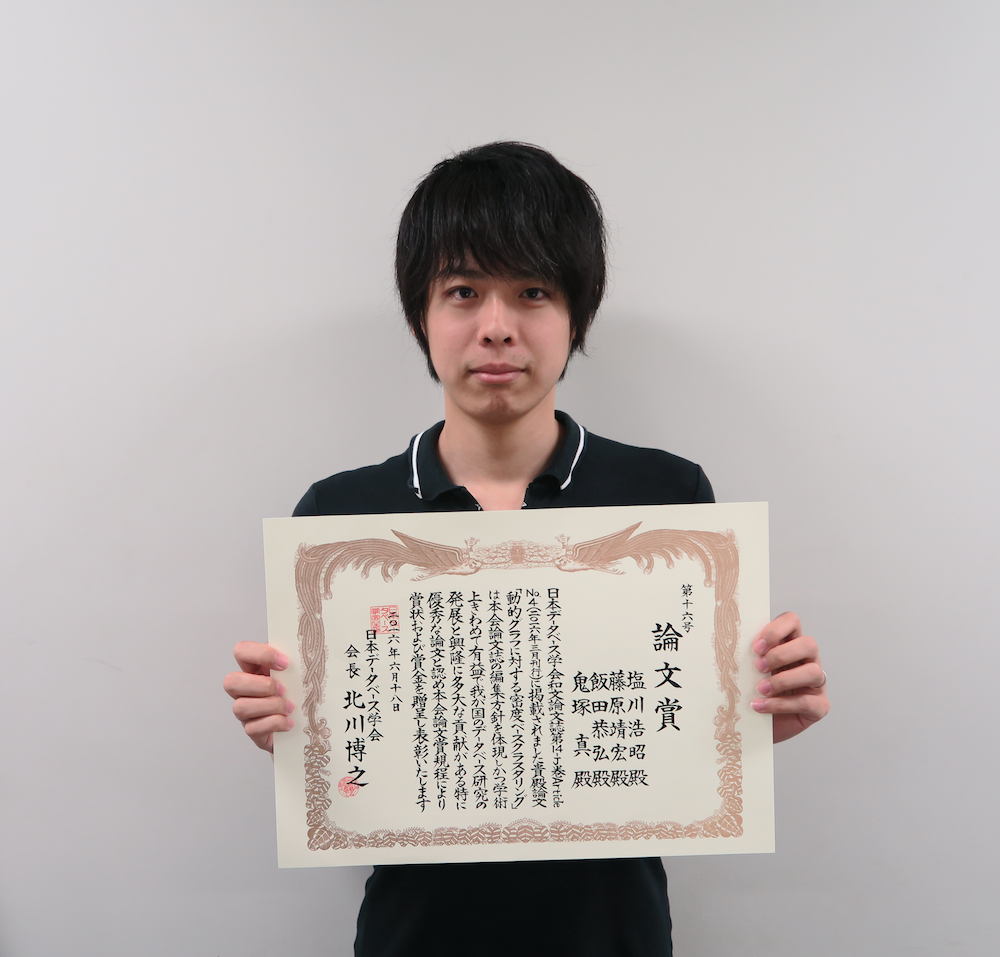 第十六号
論文賞
塩川浩昭殿
藤原靖宏殿
飯田恭弘殿
鬼塚真殿
日本データベース学会和文論文誌第14-J巻Article
No.4(二〇一六年三月刊行)に掲載されました貴殿論文
「動的グラフに対する密度ベースクラスタリング」
は本会論文誌の編集方針を体現しかつ学術
上きわめて有益で我が国のデータベース研究の
発展と興隆に多大な貢献がある特に
優秀な論文と認め本会論文賞規程により
賞状および賞金を贈呈し表彰いたします
二〇一六年六月十八日
日本データベース学会
会長 北川博之